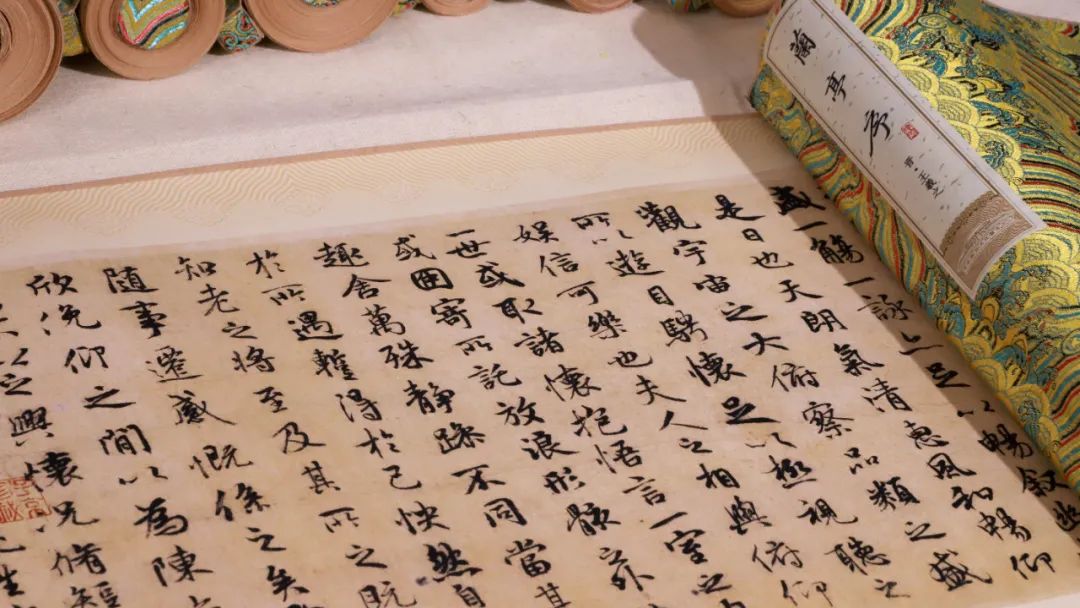 蘭亭序
晉 王羲之
盛一觴一詠亦足以暢敘幽
是日也天朗氣清惠風和暢仰
觀宇宙之大俯察品類之盛
所以遊目騁懷足以極視聽之
娛信可樂也夫人之相與俯仰
一世或取諸懷抱悟言一室之
或因寄所託放浪形骸之外
趣舍萬殊靜躁不同當其
於所遇蹔得於己快然自
知老之將至及其所之既
隨事遷感慨係之矣
欣俛仰之間以為陳
不以之興懷況脩短